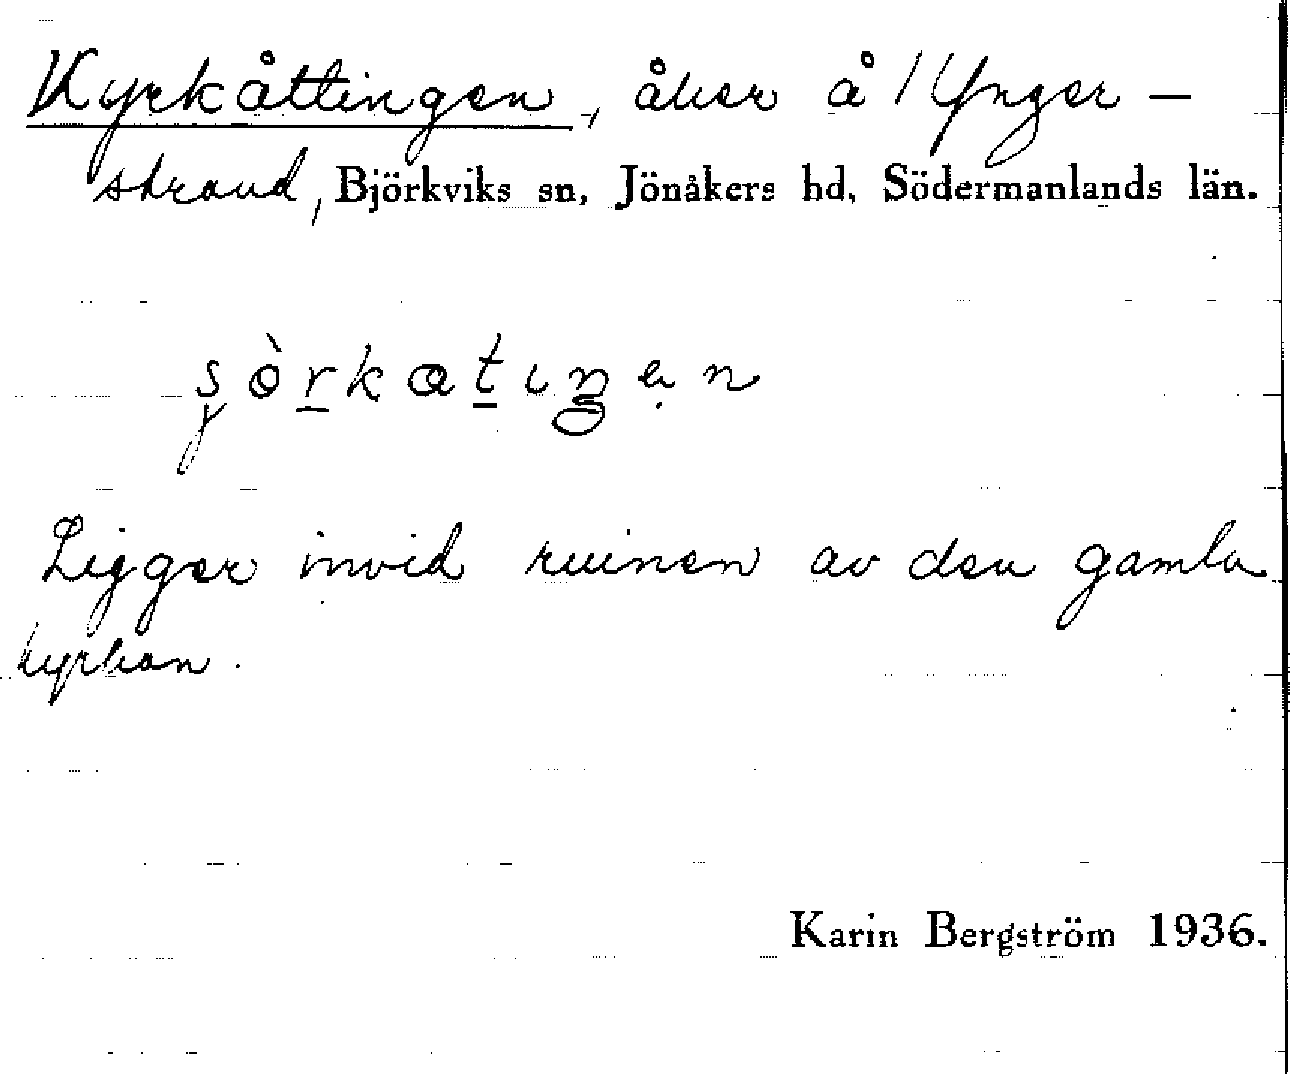 Kyrkåttingen, åker å / Ynger-
strand, Björkviks sn, Jönåkers hd, Södermanlands län.
Ligger invid ruinen av den gamla
kyrkan.
Karin Bergström 1936.